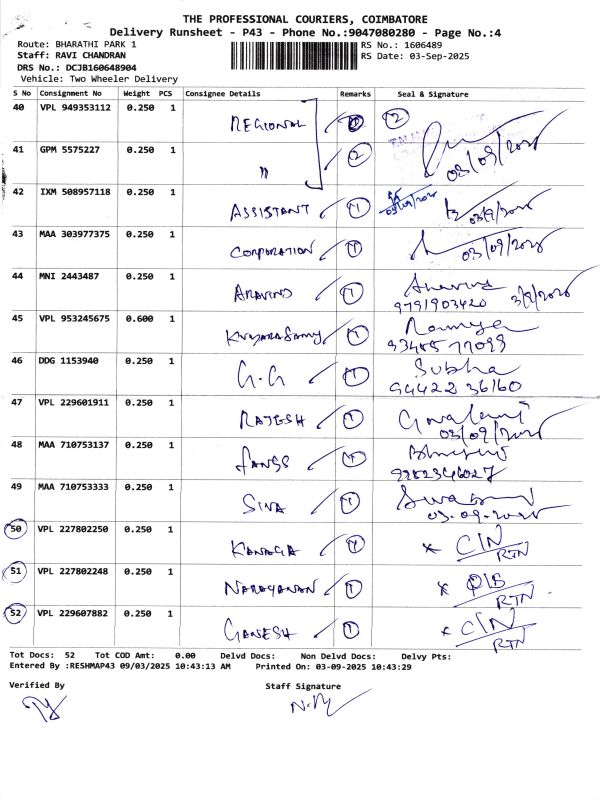 THE PROFESSIONAL COURIERS, COIMBATORE
Delivery Runsheet - P43 - Phone No.:9047080280 - Page No.:4
Route: BHARATHI PARK 1 RS No.: 1606489
Staff: RAVI CHANDRAN RS Date: 03-Sep-2025
DRS No.: DCJB160648904
Vehicle: Two Wheeler Delivery
S No Consignment No Weight PCS Consignee Details Remarks Seal & Signature
40 VPL 949353112 0.250 1 REGIONAL 2
41 GPM 5575227 0.250 1 " 2 03/09/2025
42 IXM 508957118 0.250 1 ASSISTANT 1 03/09/2025 03/9/2025
43 MAA 303977375 0.250 1 CORPORATION 1 03/09/2025
44 MNI 2443487 0.250 1 ARAVIND 1 Aravind 3/9/2025
9791903420
45 VPL 953245675 0.600 1 KUMARASAMY 1 Ramya
46 DDG 1153940 0.250 1 G.G 1 Subha
94422 36160
47 VPL 229601911 0.250 1 RAJESH 1
03/09/2025
48 MAA 710753137 0.250 1 1
9282346027
49 MAA 710753333 0.250 1 SIVA 1
03.09.2025
50 VPL 227802250 0.250 1 KANAGA 1 x C/N
RTN
51 VPL 227802248 0.250 1 NARAYANAN 1 x
RTN
52 VPL 229607882 0.250 1 GANESH 1 x C/N
RTN
Tot Docs: 52 Tot COD Amt: 0.00 Delvd Docs: Non Delvd Docs: Delvy Pts:
Entered By :RESHMAP43 09/03/2025 10:43:13 AM Printed On: 03-09-2025 10:43:29
Verified By Staff Signature